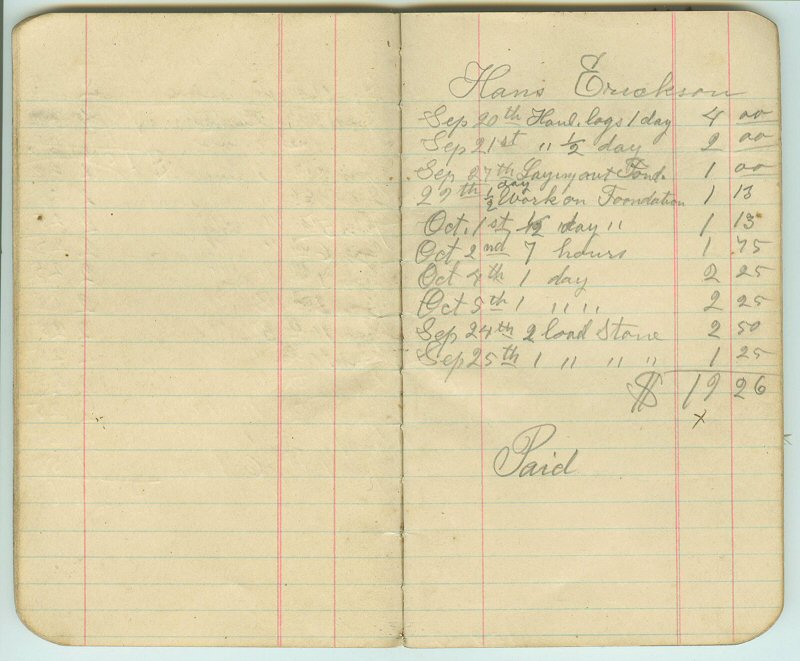 Hans Erickson
Sep 20th Haul. logs 1 day 4 00
Sep 21st " 1/2 day 2 00
Sep 27th Laying out Fond. 1 00
27th 1/2 day Work on Foondation 1 13
Oct. 1st 1/2 day " 1 13
Oct 2nd 7 hours 1 .75
Oct 4th 1 day 2 25
Oct 5th 1 " " 2 25
Sep 24th 2 load Stone 2 50
Sep 25th 1 " " " 1 25
$ 19 26
x
Paid